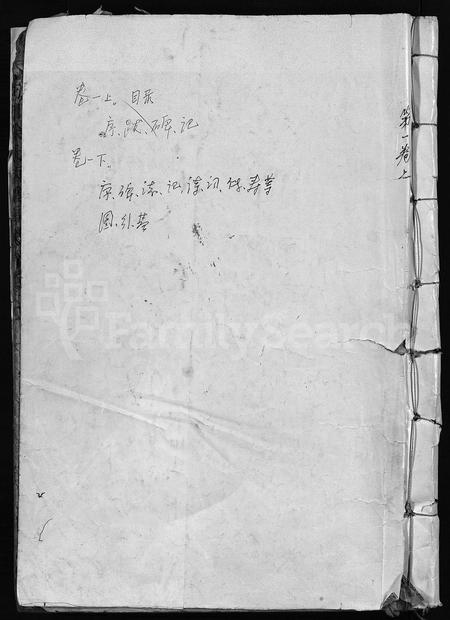 卷一上。目录
序、跋、碑、记
卷一下。
序、碑、记、传、寿等
图、引、
第一卷上
FamilySearch